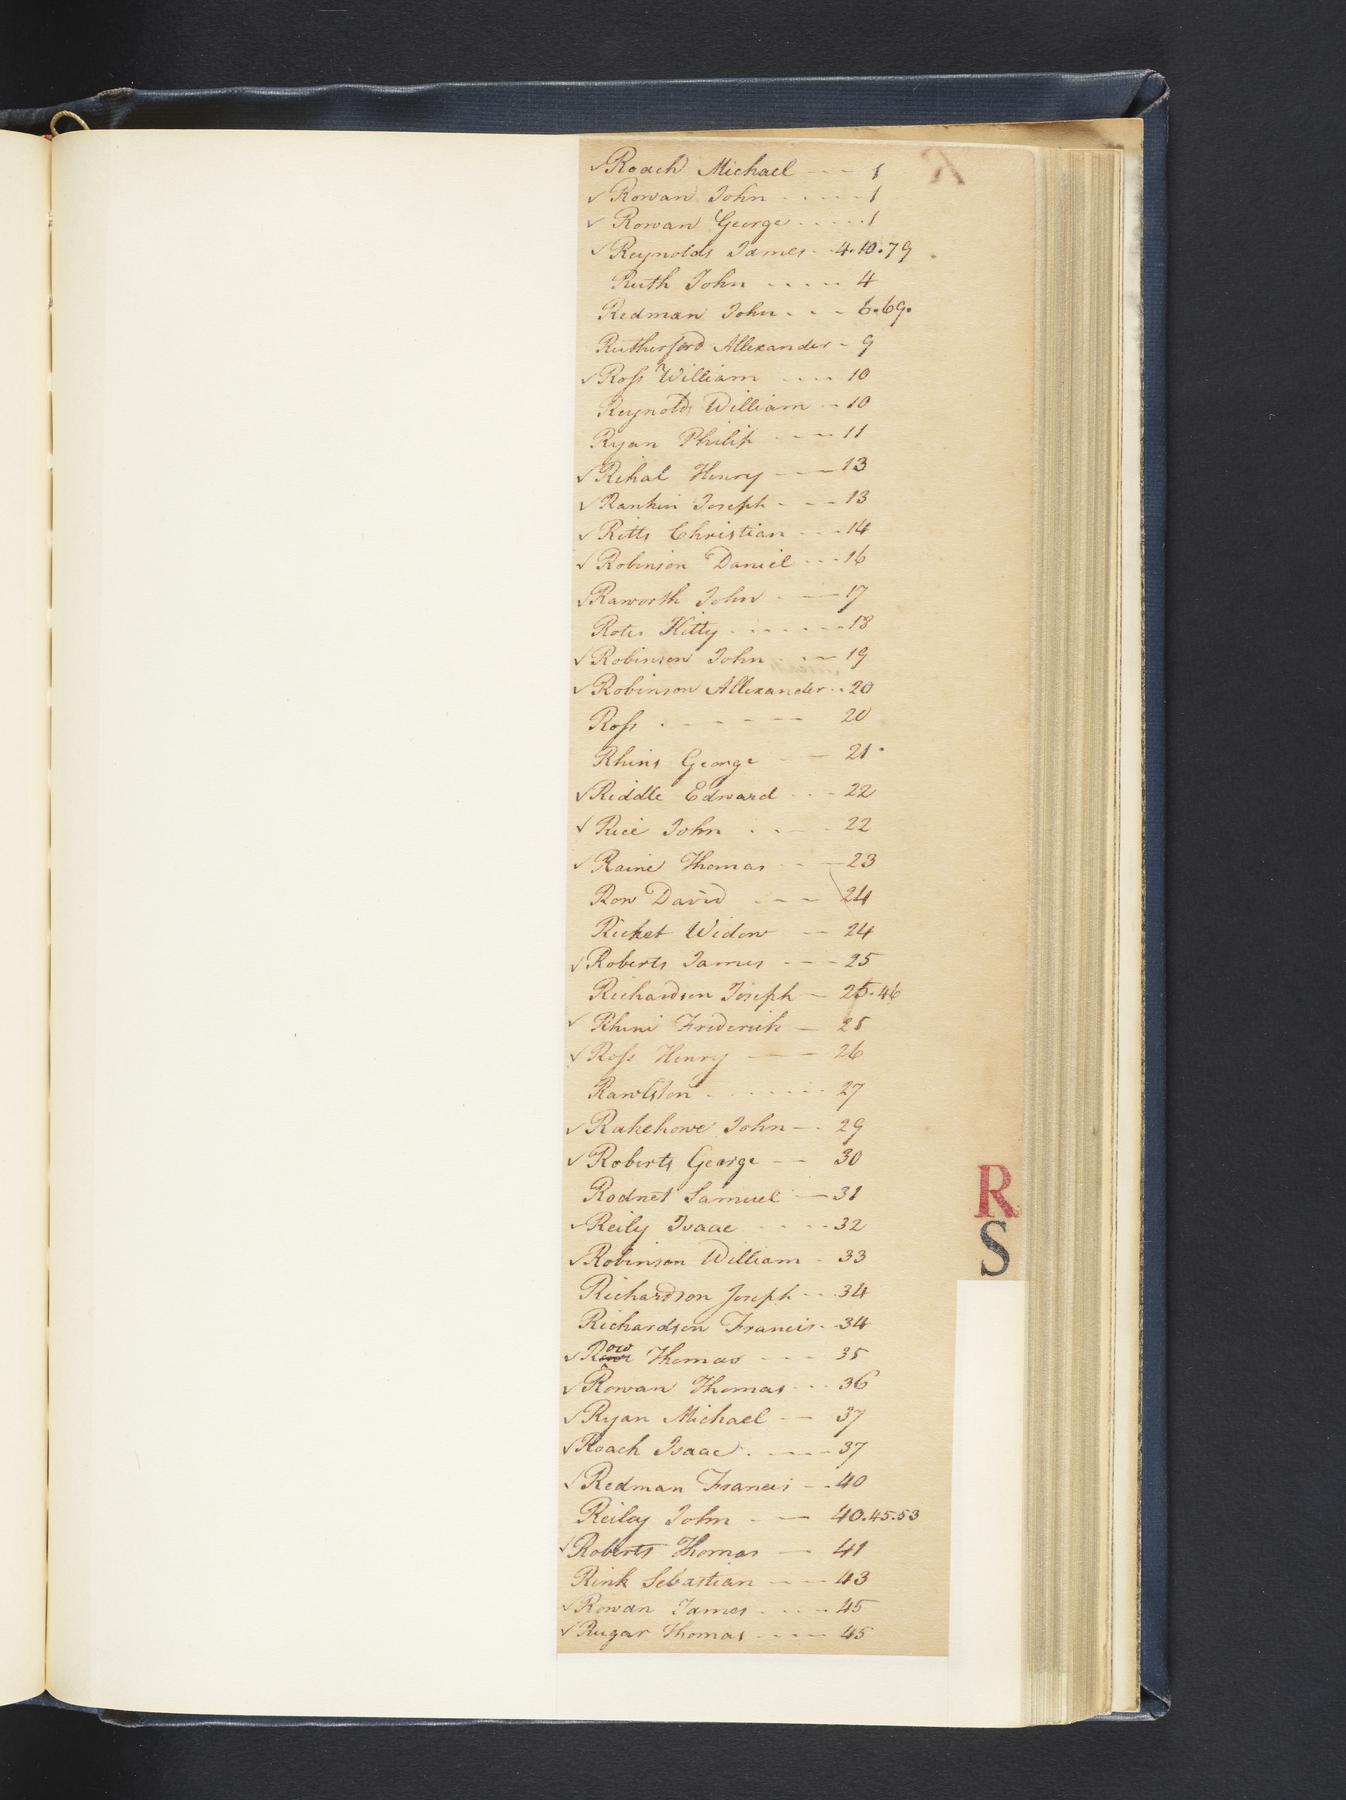 ✓Roach Michael - - - 1
✓ Rowan John - - - - - 1
✓ Rowan George - - - - - 1
✓ Reynolds James - - 4.10.79
Ruth John - - - - - 4
Redman John - - - 6.69.
Rutherford Allexander - 9
✓Roſs William - - - - 10
Reynolds William - - 10
Ryan Philip - - - 11
✓Rihal Henry - - - 13
✓Rankin Joseph - - - 13
✓Ritts Christian - - - 14
✓Robinson Daniel - - - 16
✓Raworth John - - - 17
Rotes Kitty - - - - - - - 18
✓Robinson John - - - 19
✓Robinson Allexander - - 20
Roſs - - - - - - 20
Rhins George - - 21
✓Riddle Edward - - - 22
✓Rice John - - - - 22
✓Raine Thomas - - - 23
Row David - - - 24
Ricket Widow - - 24
✓Roberts James - - - 25
Richardson Joseph - 25.46
✓Rhini Frederick - 25
✓Roſs Henry - - - 26
Rawlston - - - - - - - 27
✓Rakehowe John - - 29
✓Roberts George - - 30
Rodnet Samuel - - 31
✓Reily Isaac - - - - - 32
✓Robinson William - 33
Richardson Joseph - - - 34
Richardson Francis - - 34
✓Row Thomas - - - 35
✓Rowan Thomas - - - 36
✓Ryan Michael - - 37
✓Roach Isaac - - - - 37
✓Redman Francis - - 40
Reiley John - - 40.45.53
✓Roberts Thomas - 41
Rink Sebastian - - - 43
✓Rowan James - - - - - 45
✓Rugar Thomas - - - - 45
R
S